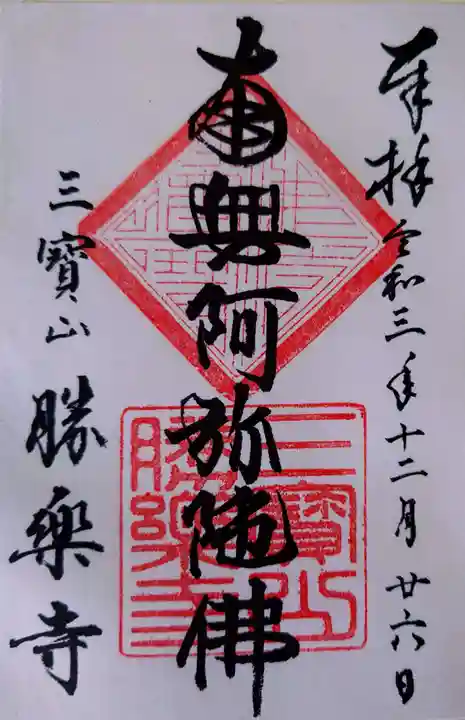 奉拝 令和三年十二月廿六日
南無阿弥陀佛
三寳山 勝樂寺
三寳山
勝樂寺